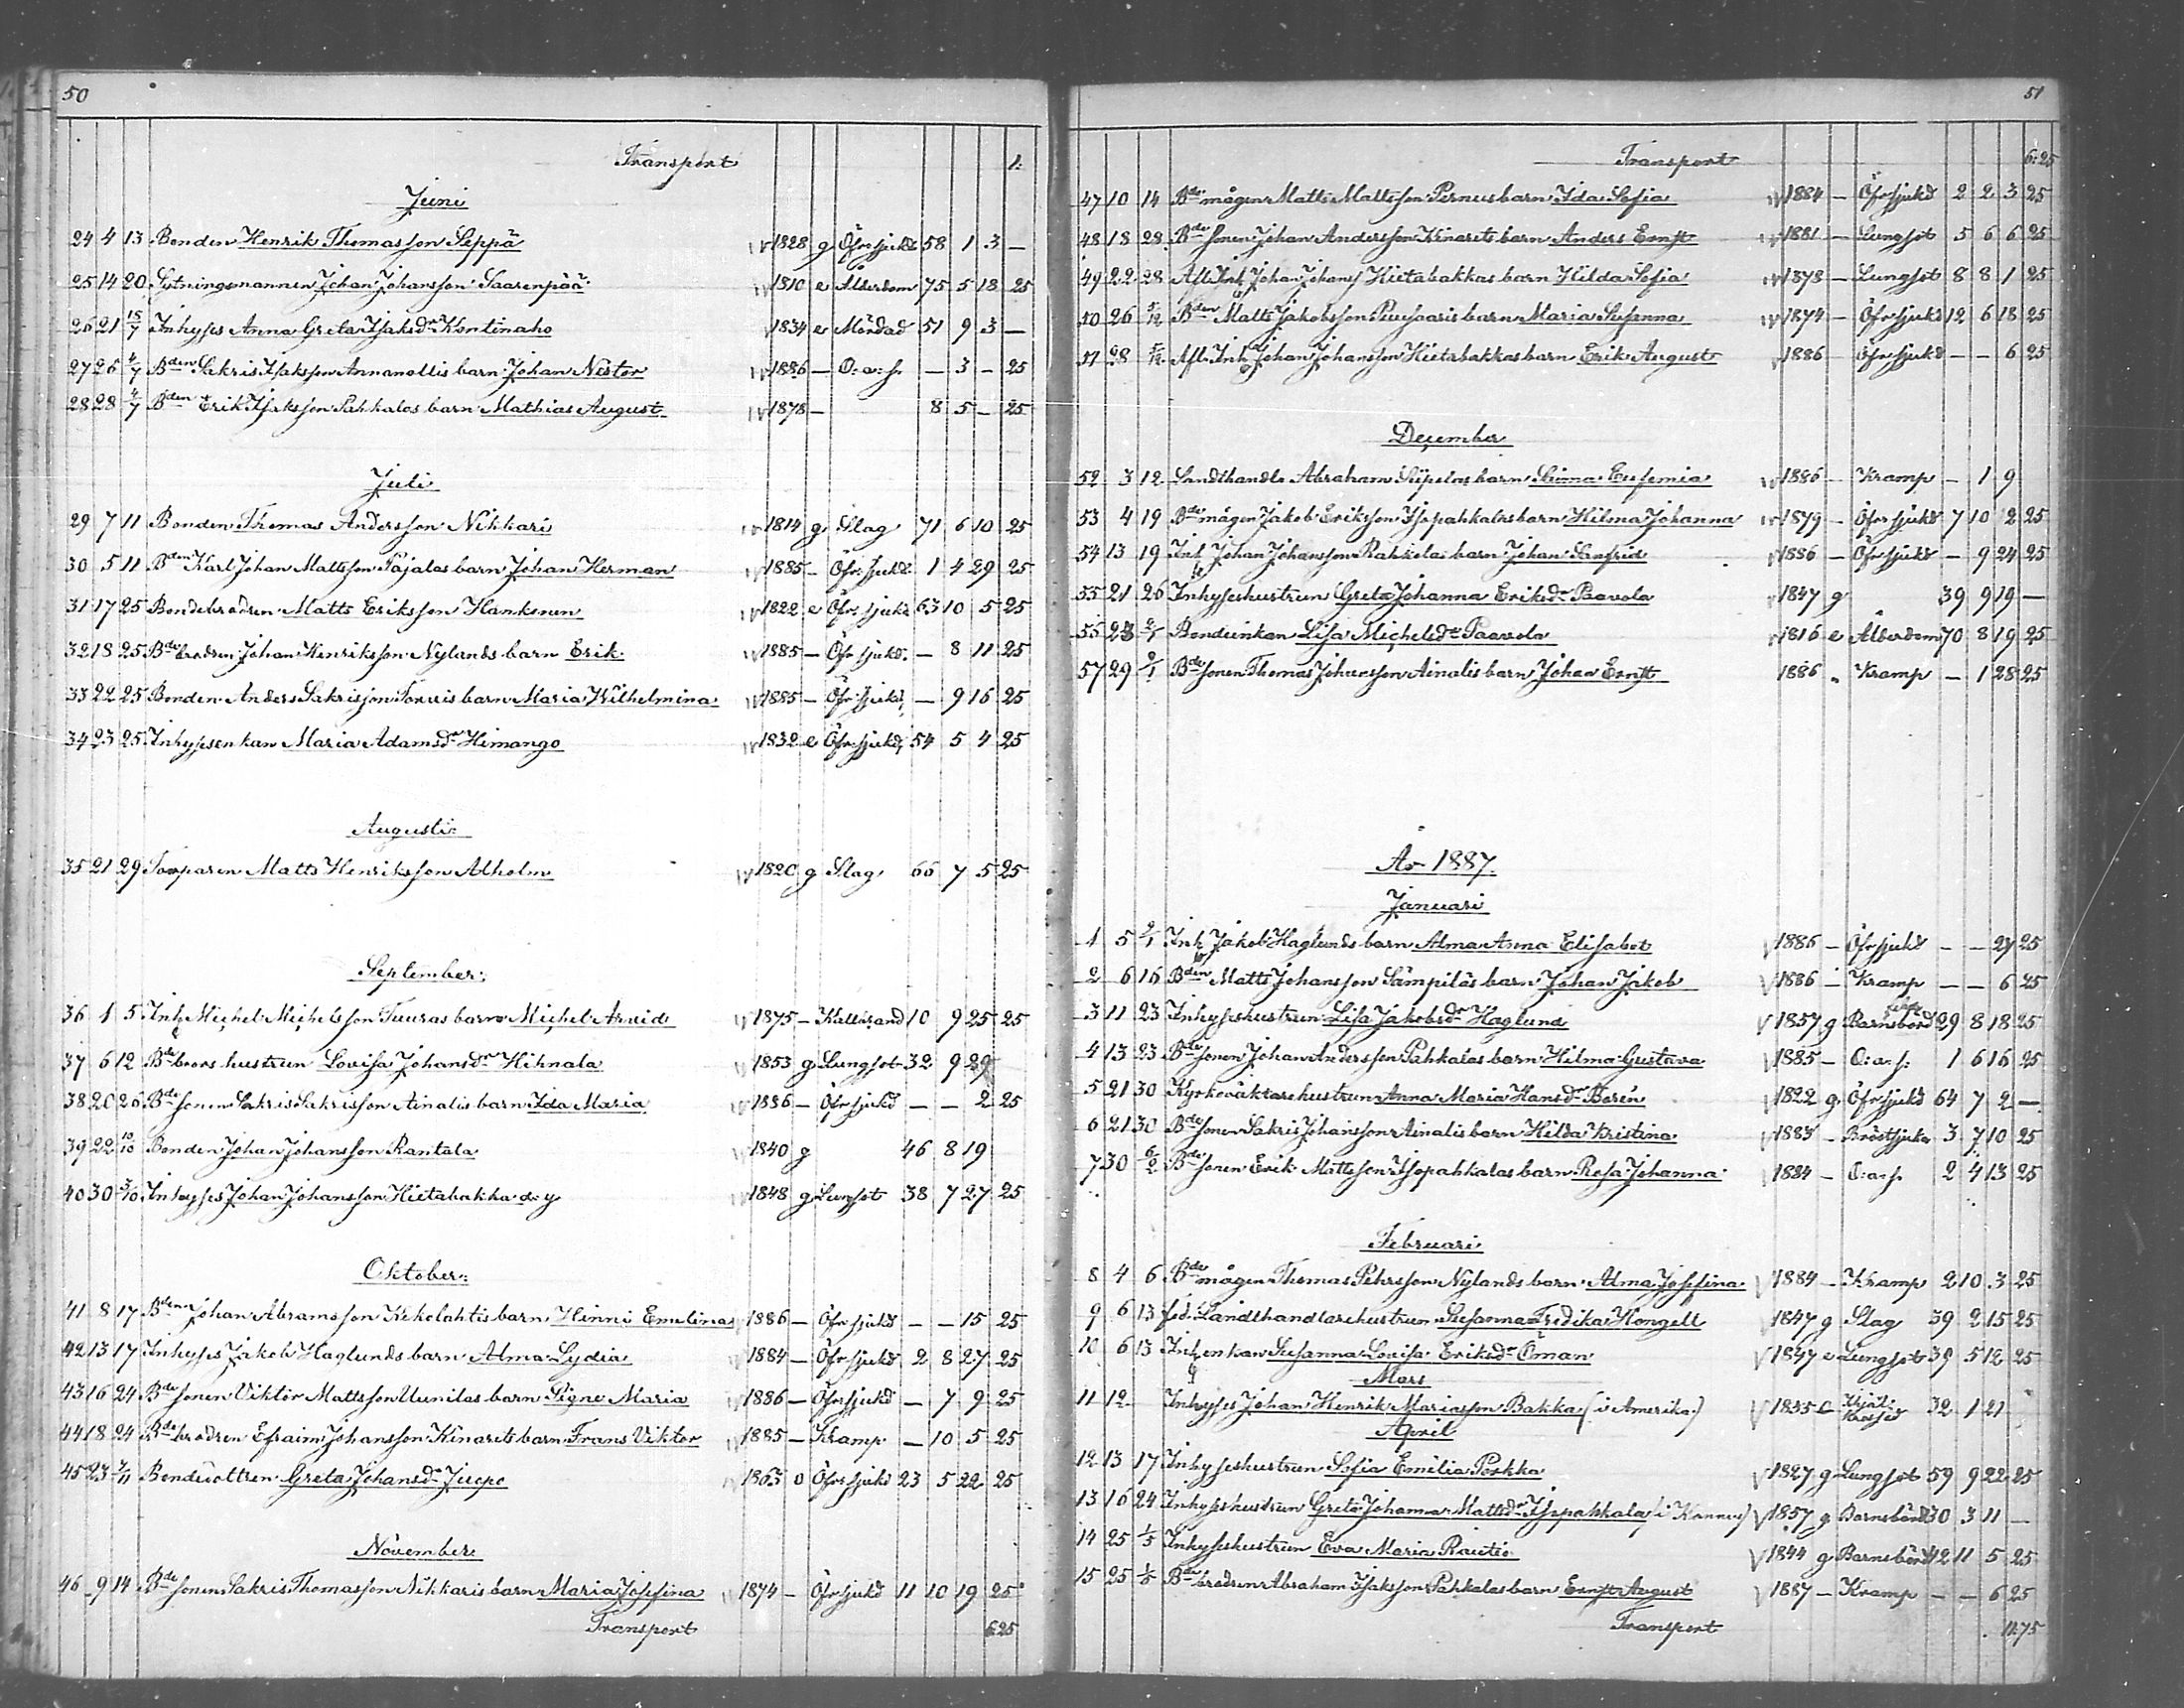 50
Transport 1:
Juni
24 4 13 Bonden Henrik Thomasson Seppä 1828 g Öfr. sjukd 58 1 3 —
25 14 20 Sytningsmannen Johan Johansson Saarenpää 1810 e Ålderdom 75 5 18 25
26 21 15/7 Inhyses Anna Greta Isaksdr Kontinaho 1834 e Mördad 51 9 3 —
27 26 4/7 Bden Sakris Isaksson Annanollis barn Johan Nestor 1886 — O: a: s. — 3 — 25
28 28 4/7 Bden Erik Isaksson Pahkalas barn Mathias August 1878 — 8 5 — 25
Juli
29 7 11 Bonden Thomas Andersson Nikkari 1814 g Slag 71 6 10 25
30 5 11 Bden Karl Johan Mattsson Pajalas barn Johan Herman 1885 — Öfr: sjukd. 1 4 29 25
31 17 25 Bondebrodren Matts Eriksson Hanksnen 1822 e Öfr. sjukd 63 10 5 25
32 18 25 Bdebrodren Johan Henriksson Nylands barn Erik 1885 — Öfr sjukd. — 8 11 25
33 22 25 Bonden Anders Sakrisson Sorvis barn Maria Wilhelmina 1885 — Öfr: sjukd; — 9 16 25
34 23 25 Inhysenkan Maria Adamsdr Himango 1832 e Öfr: sjukd; 54 5 4 25
Augusti:
35 21 29 Torparen Matts Henriksson Alholm 1820 g Slag 66 7 5 25
September:
36 1 5 Inh. Michel Michelsson Tuuras barn Michel Arvid 1875 — Kallbrand 10 9 25 25
37 6 12 Bdebrors hustrun Lovisa Johansdr Hihnala 1853 g Lungsot 32 9 29
38 20 26 Bdesonen Sakris Sakrisson Ainalis barn Ida Maria 1886 — Öfr sjukd — — 2 25
39 22 10/10 Bonden Johan Johansson Rantala 1840 g 46 8 19
40 30 3/10 Inhyses Johan Johansson Hietabakka d: y 1848 g Lungsot 38 7 27 25
Oktober:
41 8 17 Bden Johan Abramsson Kekolahtis barn Hinni Emelina 1886 — Öfr sjukd — — 15 25
42 13 17 Inhyses Jakob Haglunds barn Alma Lydia 1884 — Öfr sjukd 2 8 27 25
43 16 24 Bdesonen Viktor Mattsson Uunilas barn Signe Maria 1886 — Öfr sjukd — 7 9 25
44 18 24 Bdebrodren Efraim Johansson Kinarets barn Frans Viktor 1885 — Kramp — 10 5 25
45 23 7/11 Bondedottren Greta Johansdr Juopo 1863 o Öfr sjukd 23 5 22 25
November
46 9 14 Bdesonen Sakris Thomasson Nikkaris barn Maria Josefina 1874 — Öfr sjukd 11 10 19 25
Transport 6:25
51
Transport 6:25
47 10 14 Bdemågen Matts Mattsson Pernus barn Ida Sofia 1884 — Öfr sjukd 2 2 3 25
48 18 28 Bdesonen Johan Andersson Kinarets barn Anders Ernst 1881 — Lungsot 5 6 6 25
49 22 28 Afl. Inh. Johan Johanss Hietabakkas barn Hilda Sofia 1878 — Lungsot 8 8 1 25
50 26 5/12 Bden Matts Jakobsson Puusaaris barn Maria Susanna 1874 — Öfr sjukd 12 6 18 25
51 28 5/12 Afl. Inh. Johan Johansson Hietabakkas barn Erik August 1886 — Öfr sjukd — — 6 25
December
52 3 12 Landthandl. Abraham Siipolas barn Saima Eufemia 1886 — Kramp — 1 9
53 4 19 Bdemågen Jakob Eriksson Isopahkalas barn Hilma Johanna 1879 — Öfr sjukd 7 10 2 25
54 13 19 Inh. Johan Johansson Rahkolas barn Johan Sanfrid 1886 — Öfr sjukd — 9 24 25
55 21 26 Inhyseshustrun Greta Johanna Eriksdr Paavola 1847 g 39 9 19 —
56 23 2/1 Bondeinkan Lisa Michelsdr Paavola 1816 e Ålderdom 70 8 19 25
57 29 9/1 Bdesonen Thomas Johansson Ainalis barn Johan Ernst 1886 „ Kramp — 1 28 25
År 1887.
Januari
1 5 9/1 Inh. Jakob Haglunds barn Alma Anna Elisabet 1886 — Öfr sjukd — — 27 25
2 6 16 Bden Matts Johansson Sämpiläs barn Johan Jakob 1886 — Kramp — — 6 25
3 11 23 Inhyseshustrun Lisa Jakobsdr Haglund 1857 g Barnsbörd 29 8 18 25
4 13 23 Bdesonen Johan Andersson Pahkalas barn Hilma Gustava 1885 — O: a: s: 1 6 16 25
5 21 30 Kyrkoväktarehustrun Anna Maria Hansdr Borén 1822 g Öfr sjukd 64 7 2 —
6 21 30 Bdesonen Sakris Johansson Ainalis barn Hilda Kristina 1883 — Bröstsjuka 3 7 10 25
7 30 6/2 Bdesonen Erik Mattsson Isopahkalas barn Rosa Johanna 1884 — O: a: s. 2 4 13 25
Februari
8 4 6 Bdemågen Thomas Pehrsson Nylands barn Alma Josefina 1884 — Kramp 2 10 3 25
9 6 13 föd: Landthandlarehustrun Susanna Fredika Hongell 1847 g Slag 39 2 15 25
10 6 13 Inh.enkan Susanna Lovisa Eriksdr Öman 1847 e Lungsot 39 5 12 25
Mars
11 12 Inhyses Johan Henrik Mariasson Bakka (i Amerika) 1855 Ihjäl: krossad 32 1 21
April
12 13 17 Inhyseshustrun Sofia Emilia Porkka 1827 g Lungsot 59 9 22 25
13 16 24 Inhyseshustrun Greta Johanna Mattsdr Isopahkala (i Kannus) 1857 g Barnsbörd 30 3 11 —
14 25 1/5 Inhyseshustrun Eva Maria Rautio 1844 g Barnsbörd 42 11 5 25
15 25 1/5 Bdebrodren Abraham Isaksson Pahkalas barn Ernst August 1887 — Kramp — — 6 25
Transport 11:75